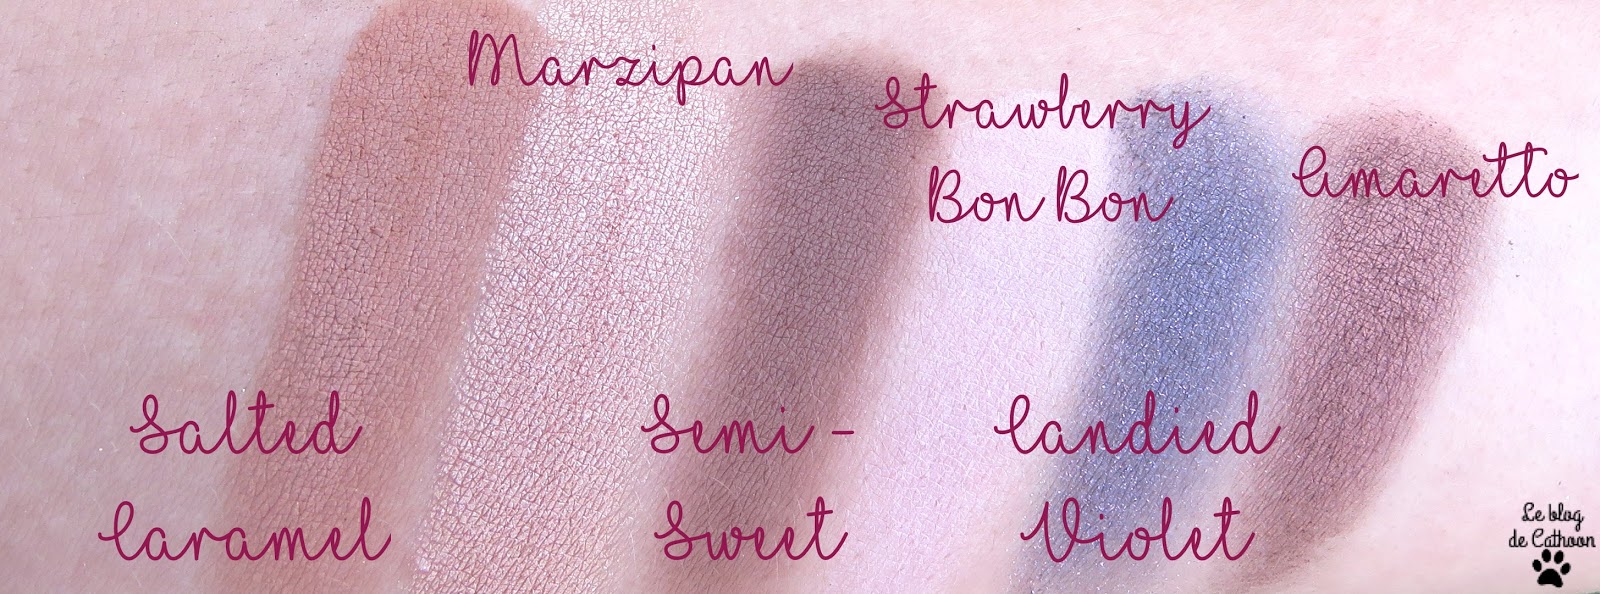 Salted
Caramel
Marzipan
Semi -
Sweet
Strawberry
Bon Bon
Candied
Violet
Amaretto
Le blog
de Cathoon